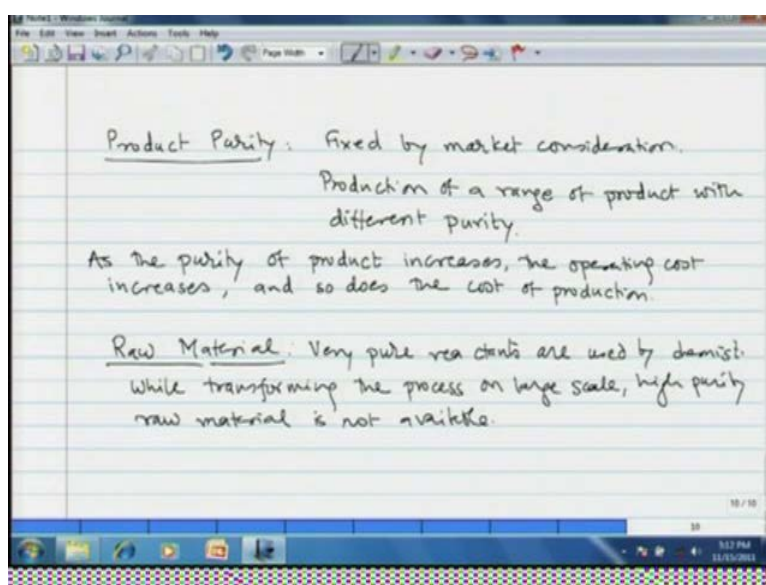 Note1 - Windows Journal
File Edit View Insert Actions Tools Help
Page Width
Product Purity : Fixed by market consideration.
Production of a range of product with
different purity.
As the purity of product increases, the operating cost
increases, and so does the cost of production.
Raw Material : Very pure reactants are used by chemist.
While transforming the process on large scale, high purity
raw material is not availble.
10 / 10
10
5:12 PM
11/15/2011